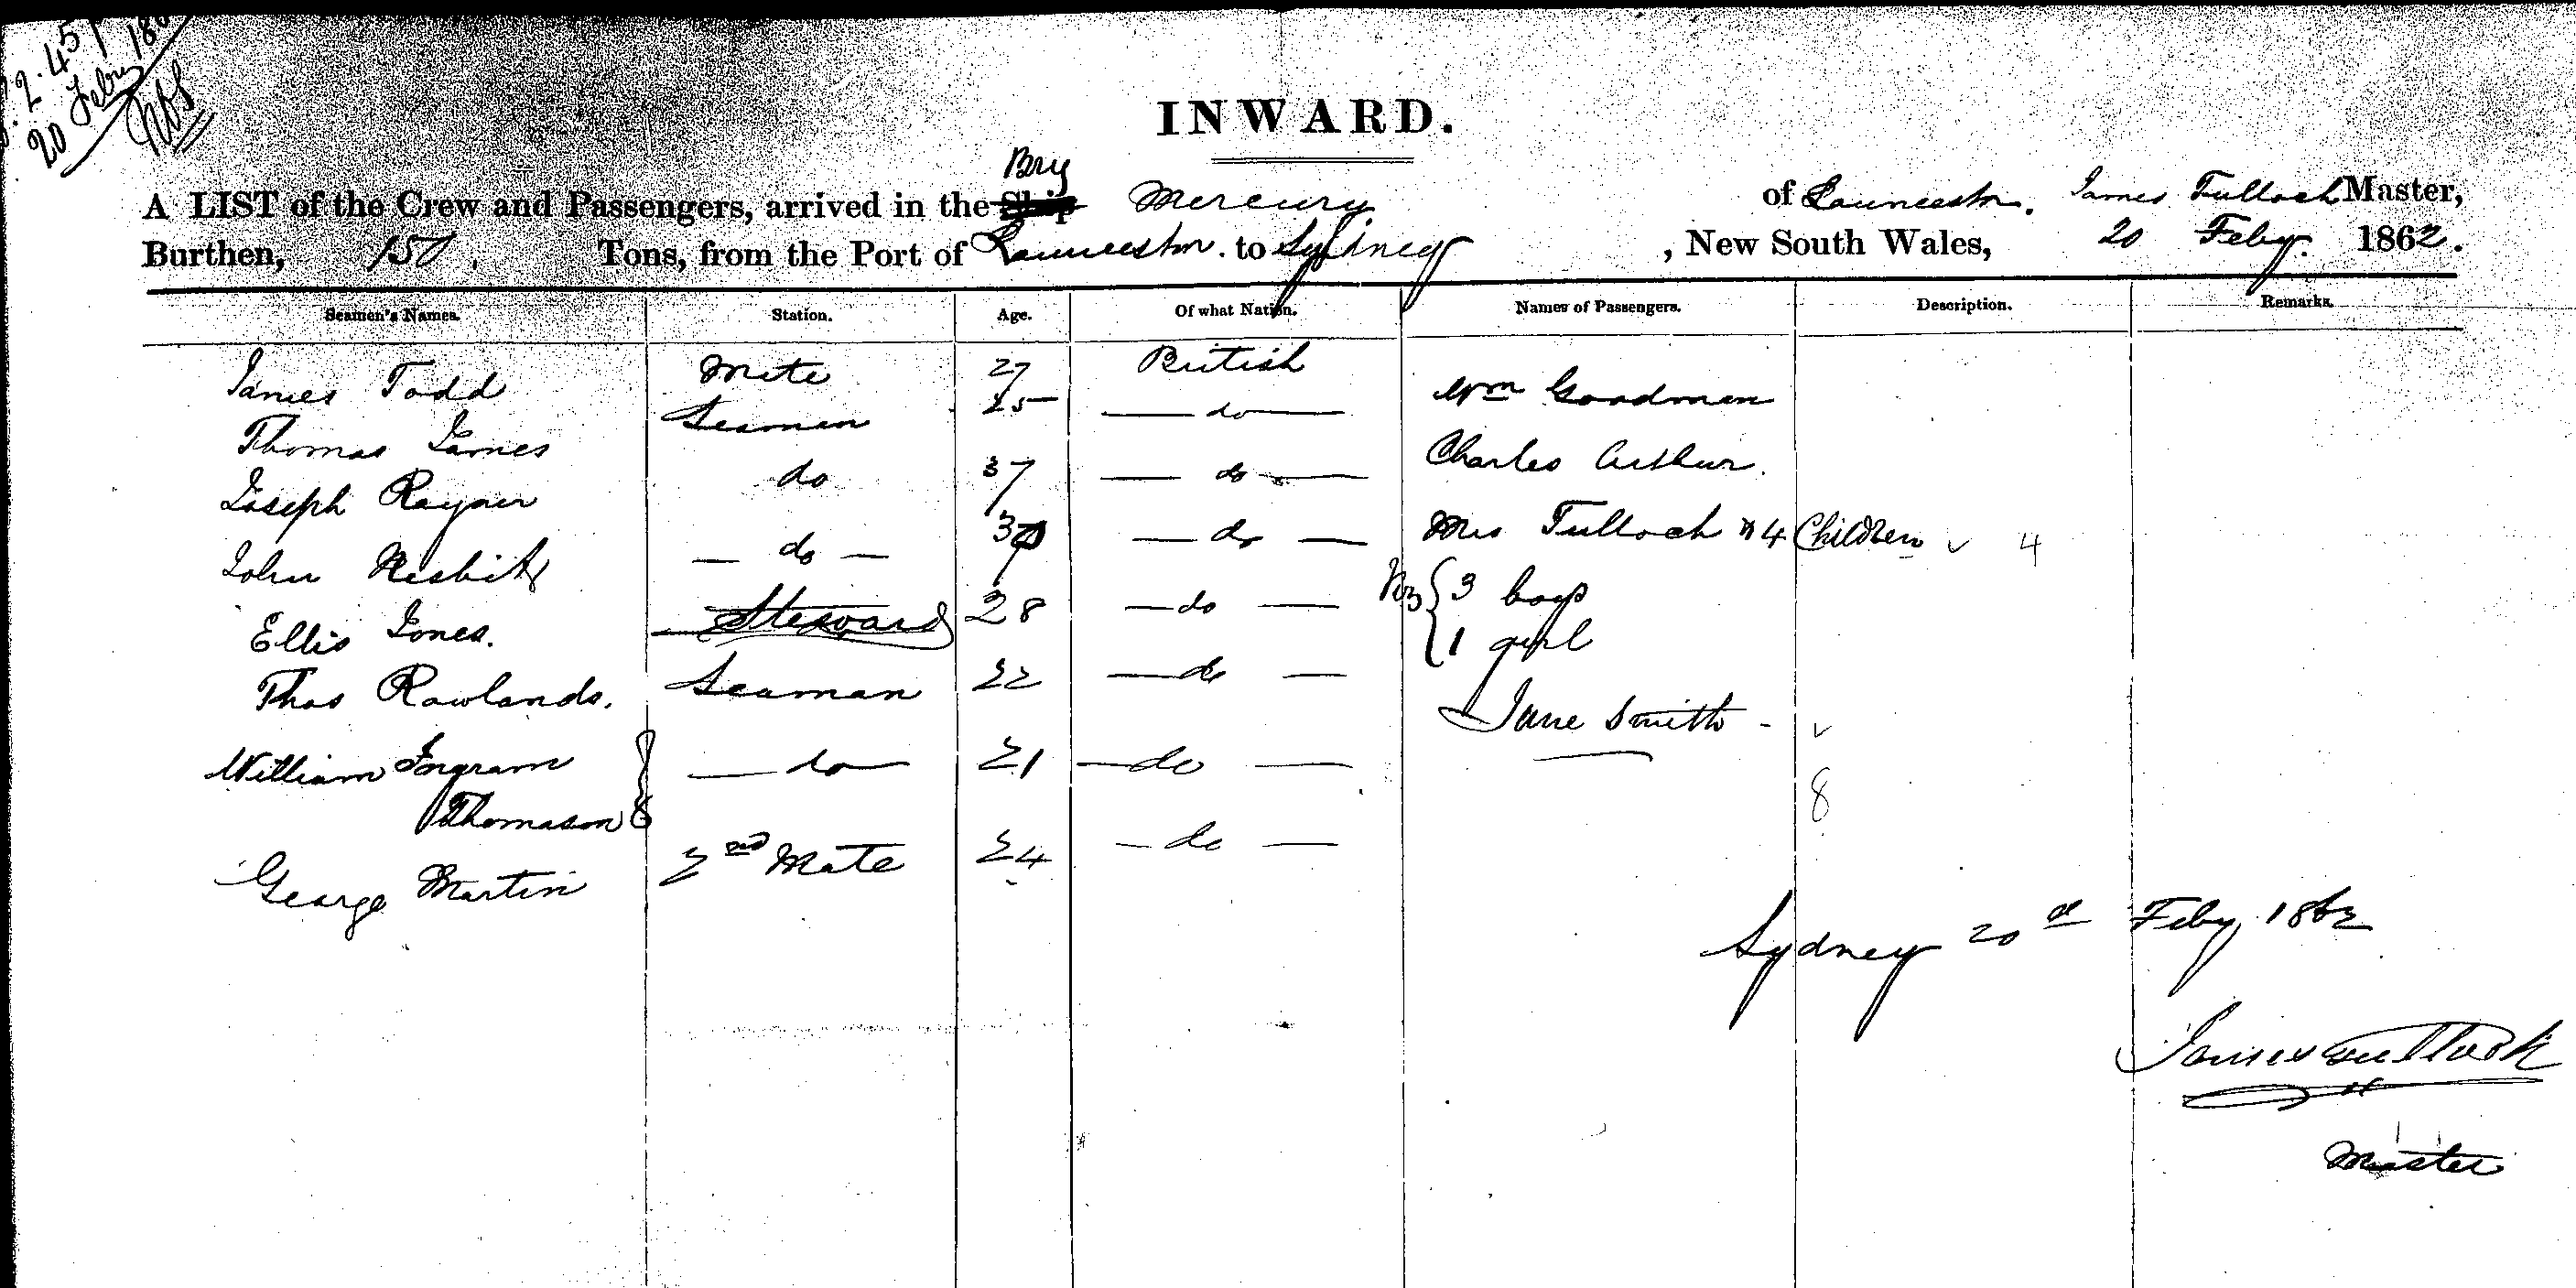 2.451
20 Feby
INWARD.
Brig
A LIST of the Crew and Passengers, arrived in the Ship Mercury of Launceston. James Tulloch Master,
Burthen, 150, Tons, from the Port of Launceston. to Sydney, New South Wales, 20 Feby. 1862.
Seamen's Names. Station. Age. Of what Nation. Names of Passengers. Description. Remarks.
James Todd Mate 27 British Wm Goodman
Thomas James Seaman 25 — do —
Joseph Rayner do 37 — do — Charles Arthur.
John Nesbit — do — — do — Mrs Tulloch & 4 Children ✓ 4
Ellis Jones. Steward 28 — do — { 3 boys
1 girl
Thos Rowlands. Seaman 22 — do — Jane Smith - ✓
William Ingram — do — 21 — do — 8
Thomason
George Martin 2nd Mate 24 — do —
Sydney 20th Feby 1862
James Tulloch
Master